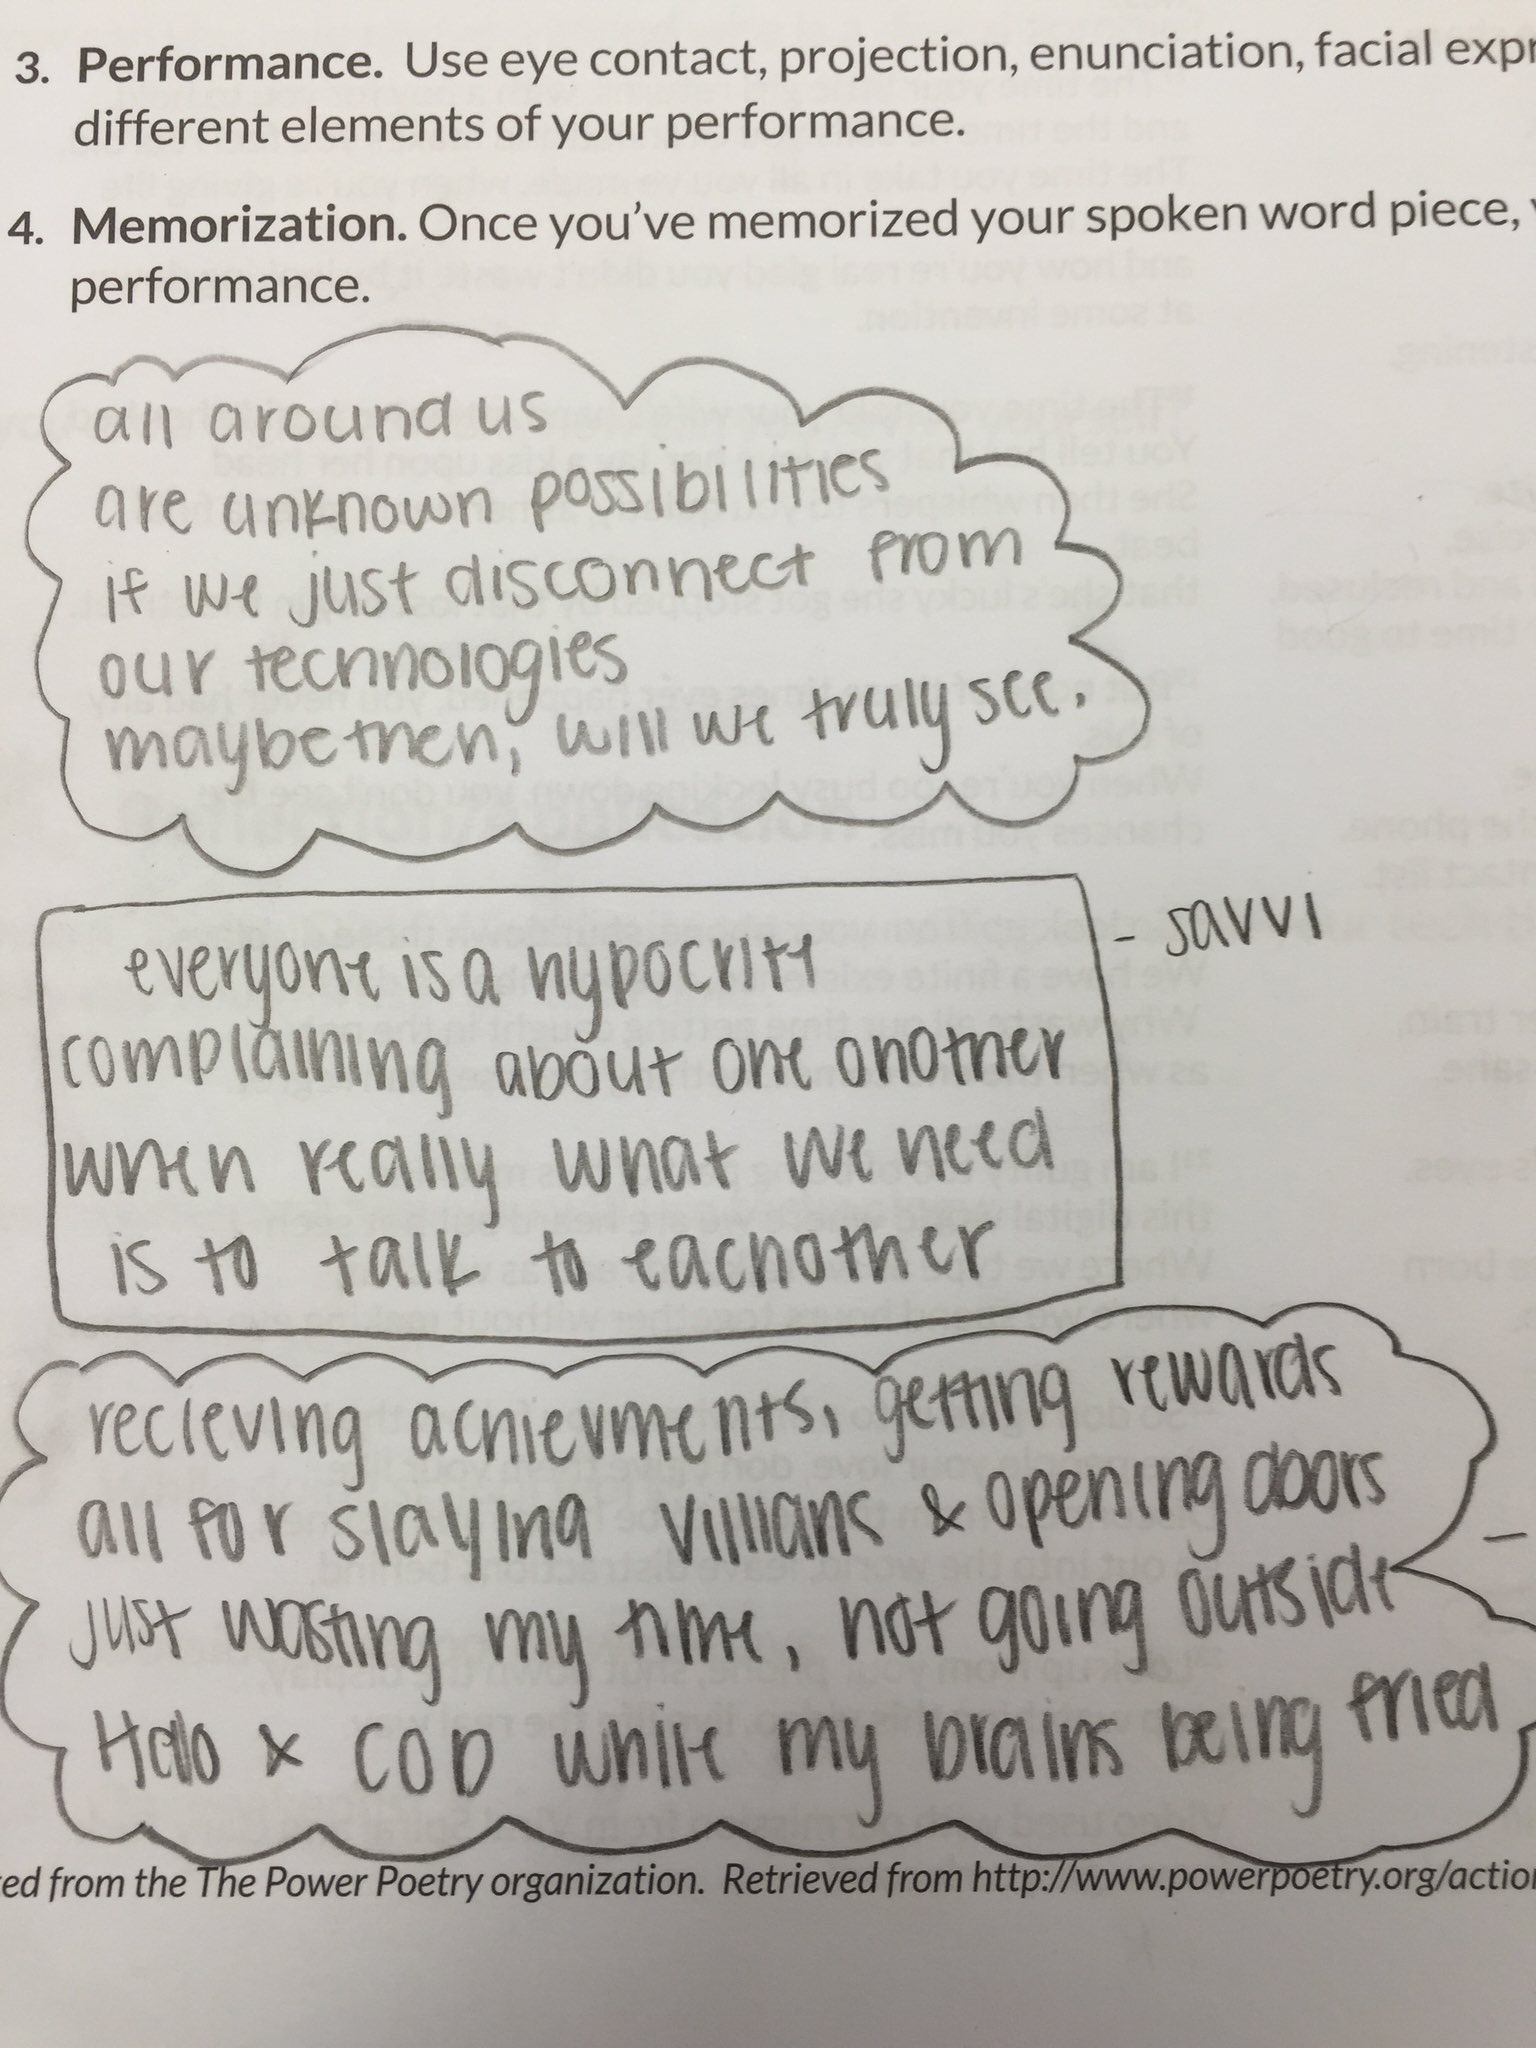 3. Performance. Use eye contact, projection, enunciation, facial expr
different elements of your performance.
4. Memorization. Once you've memorized your spoken word piece,
performance.
all around us
are unknown possibilities
if we just disconnect from
our technologies
maybe then, will we truly see.
everyone is a hypocrite
complaining about one onother
when really what we need
is to talk to eachother
- savvi
recieving achievments, getting rewards
all for slaying villians & opening doors
just wasting my time, not going outside
Halo x COD while my brains being fried
ed from the The Power Poetry organization. Retrieved from http://www.powerpoetry.org/action